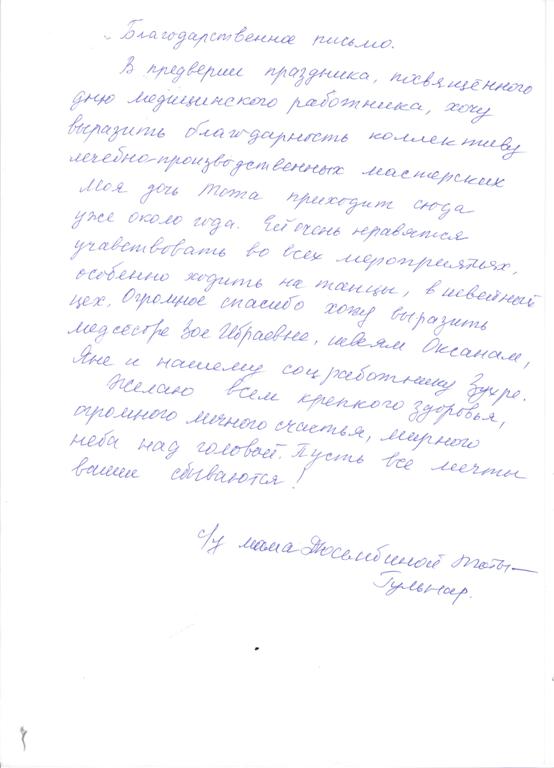 Благодарственное письмо.
В предверии праздника, посвящённого
дню медицинского работника, хочу
выразить благодарность коллективу
лечебно-производственных мастерских
Моя дочь Тота приходит сюда
уже около года. Ей очень нравятся
учавствовать во всех мероприятиях,
особенно ходить на танцы, в швейный
цех. Огромное спасибо хочу выразить
медсестре Зое Ибраевне, швеям Оксанам,
Яне и нашему соц работнику Зухре.
Желаю всем крепкого здоровья,
огромного личного счастья, мирного
неба над головой. Пусть все мечты
ваши сбываются!
с/у мама Тоты —
Гульнар.